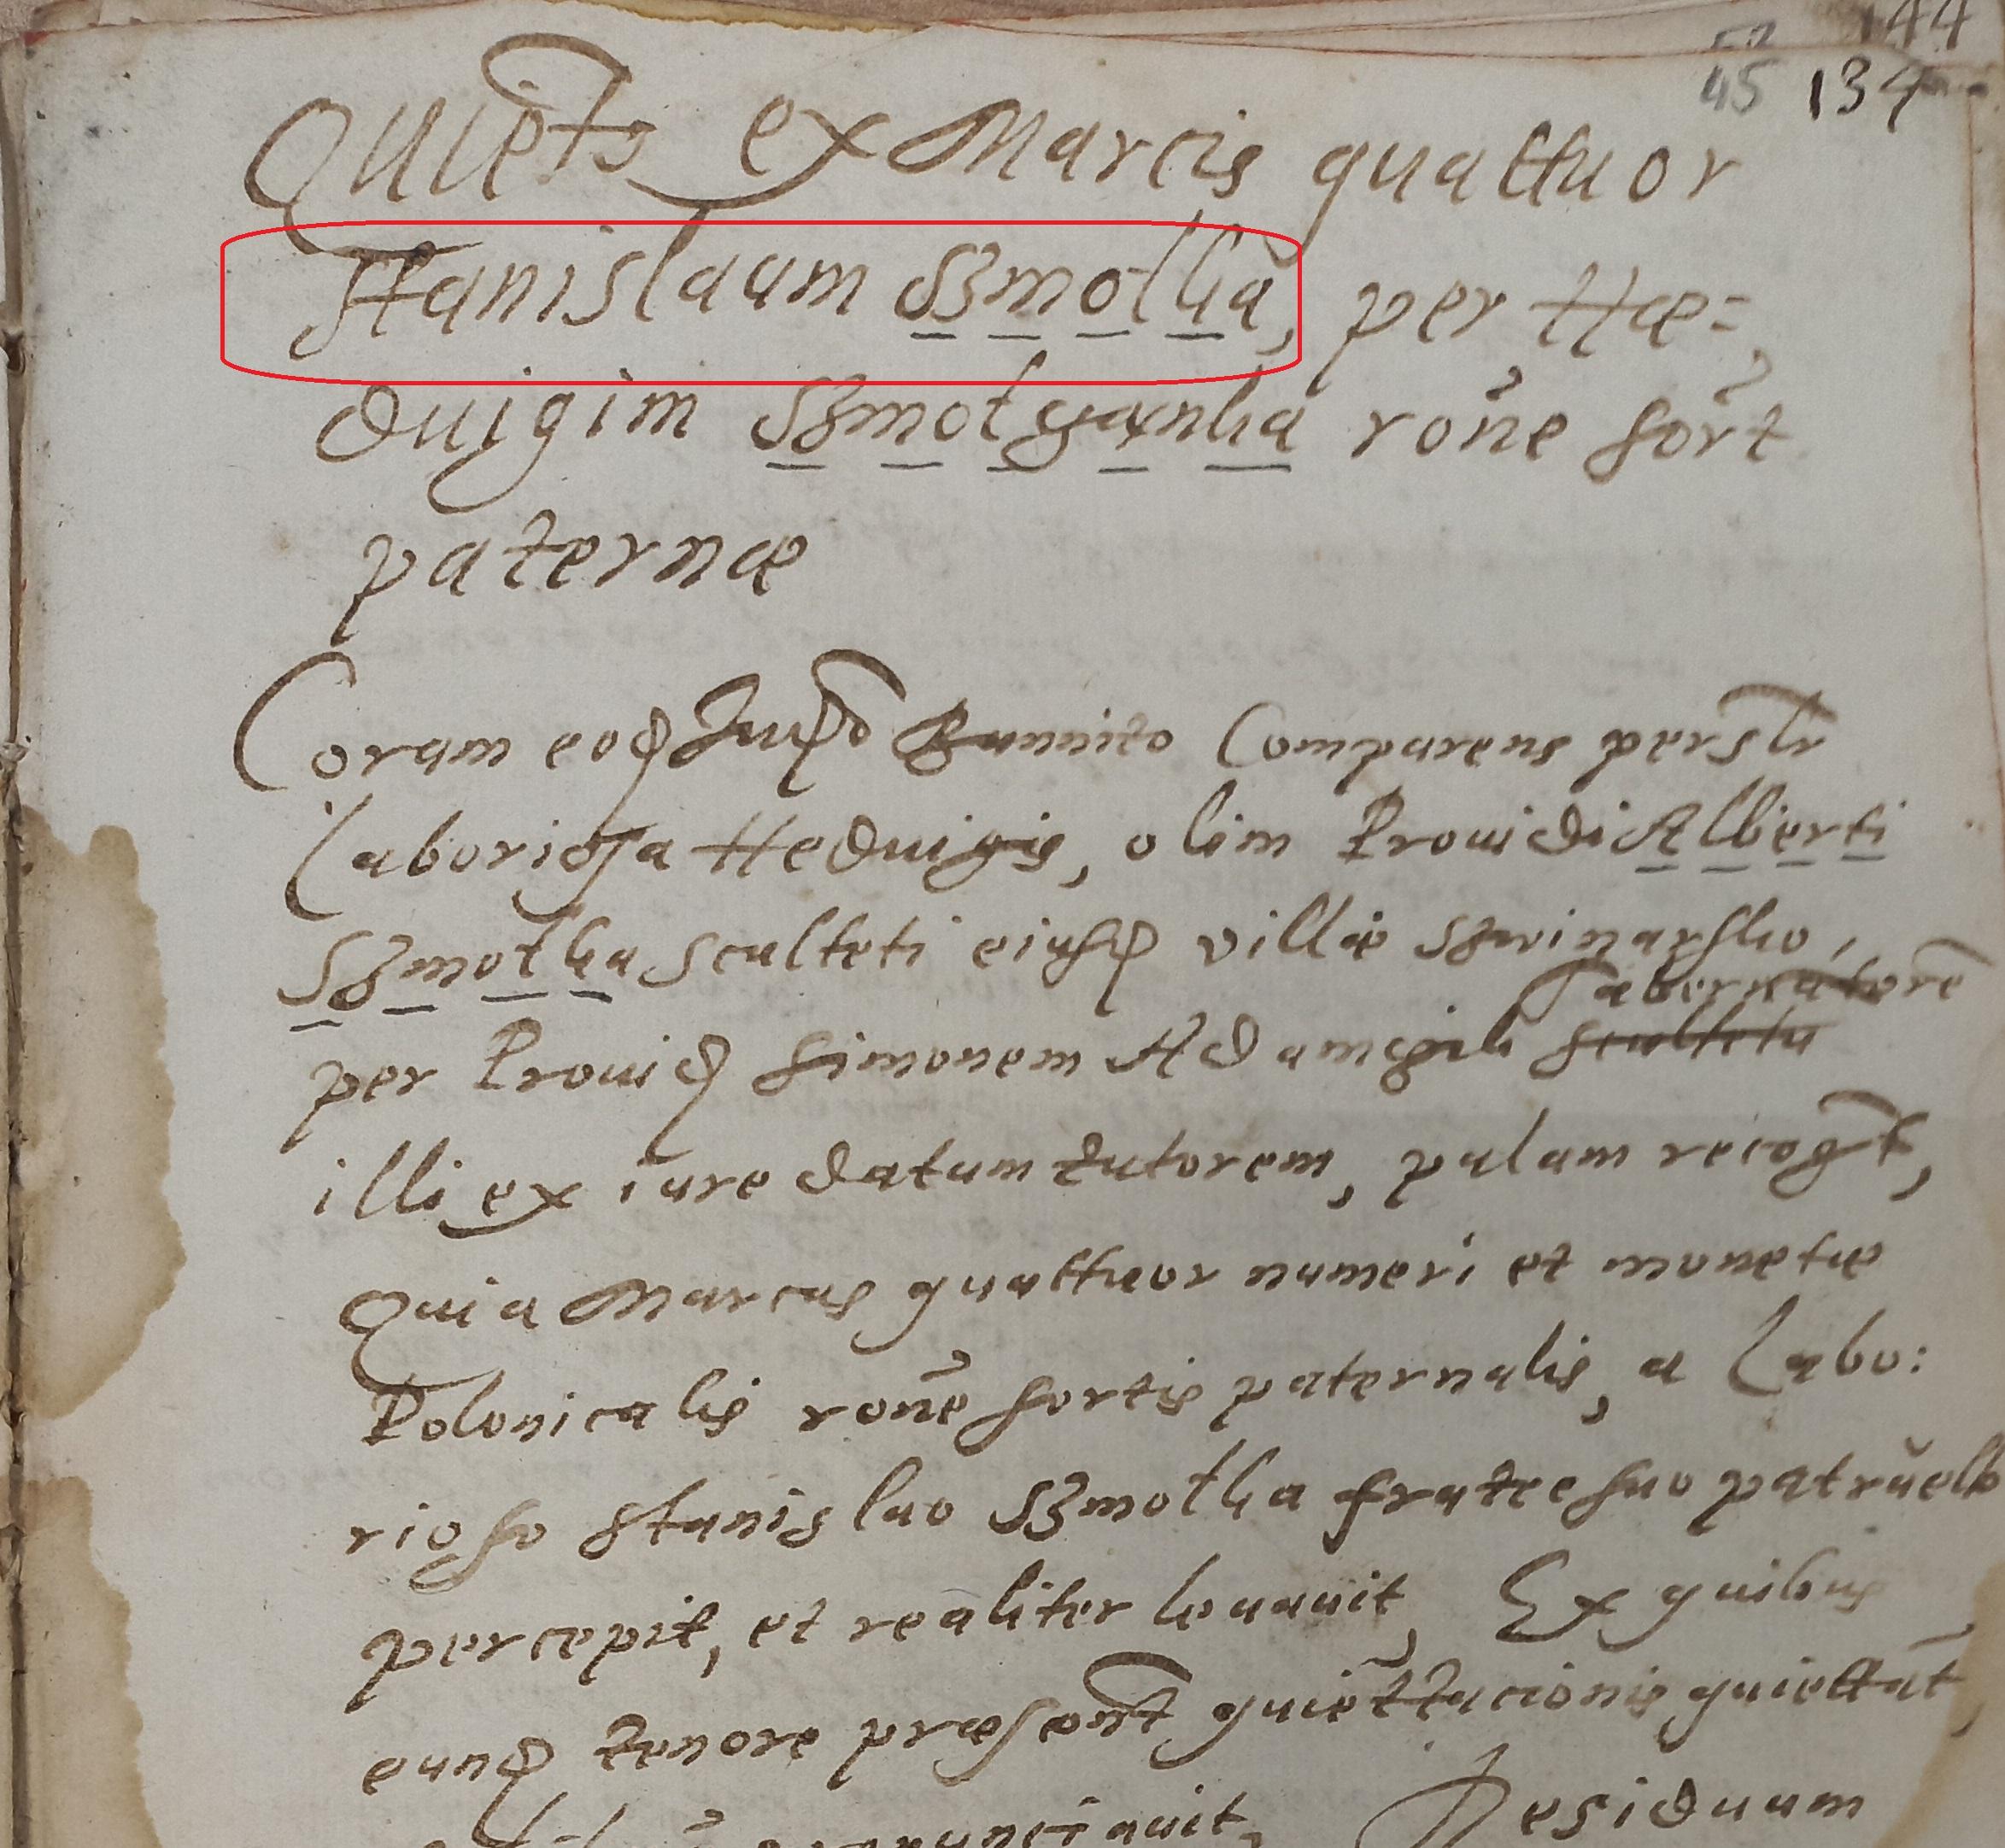 144
45 134
Quietō ex Marcis quattuor
Stanislaum Szmotka, per Hæ=
duigim Szmotczanka rōne sort
paternæ
Coram eod Iudō Bannito Comparens persłr
Laboriosa Heduigis, olim Prouidi Alberti
Szmotka Sculteti eiusd villæ Szwinarsko,
Tabernatorē
per Prouid Simonem Adamczik scultetu
illi ex iure datum tutorem, palam recogt,
Quia Marcas quattuor numeri et monetæ
Polonicalis rōne sortis paternalis, a Labo:
rioso Stanislao Szmotka fratre suo patruele
percepit, et realiter leuauit, Ex quibus
eund tenore præsent quiettacionis quiettāt,
Residuum